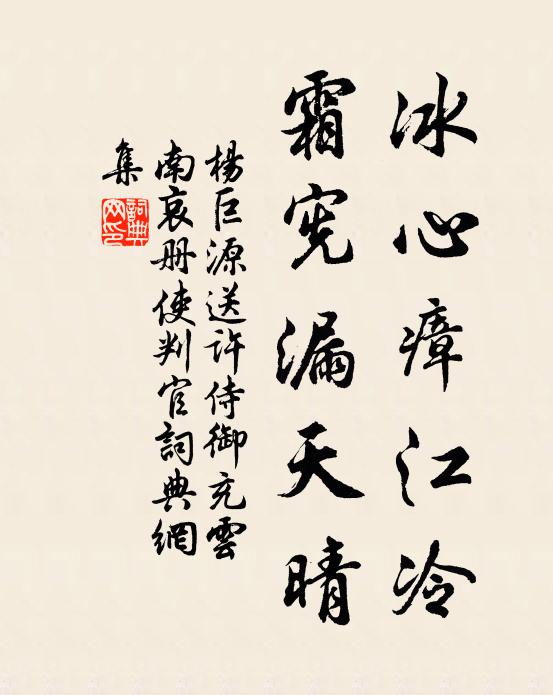 冰心瘴江冷
霜宪漏天晴
楊巨源送許侍御充雲
南哀册使判官詞典網
集
詞典網印